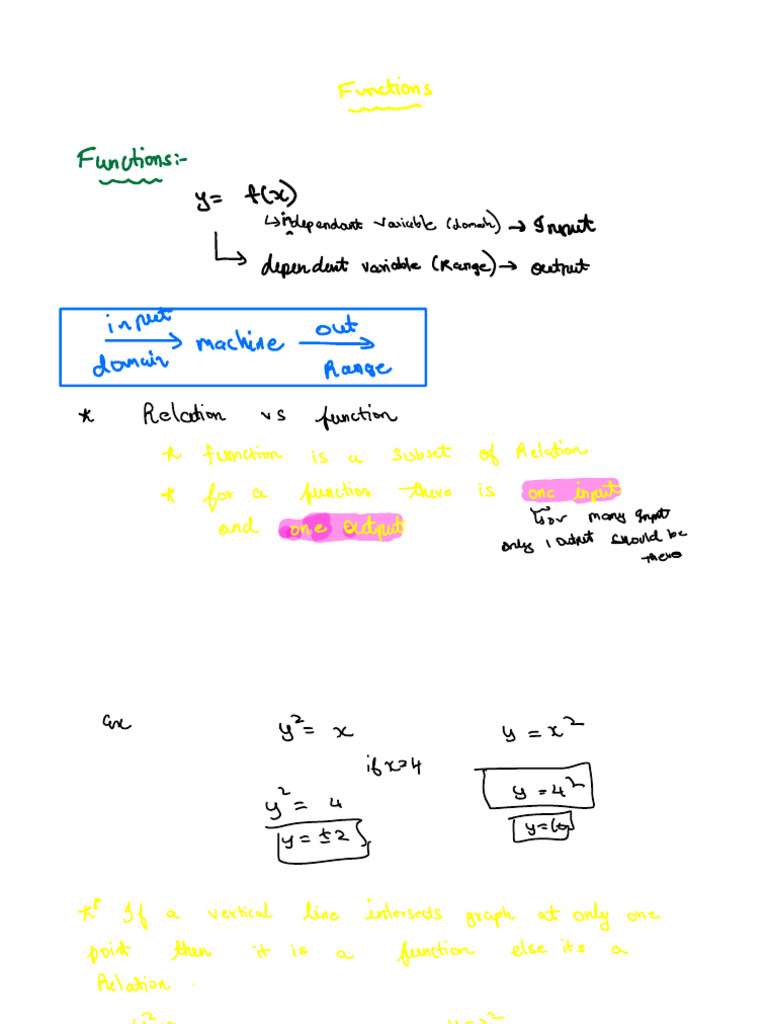 Functions
Functions:-
y = f(x)
↳ independant variable (domain) → Input
↳ dependent variable (Range) → output
input out
→ machine →
domain Range
* Relation vs function
* function is a subset of Relation
* for a function there is one input
and one output
↳ or many input
only 1 output should be
there
Ex y² = x y = x²
if x=4
y² = 4 y = 4²
y = ±2
* If a vertical line intersects graph at only one
point then it is a function else its a
Relation.